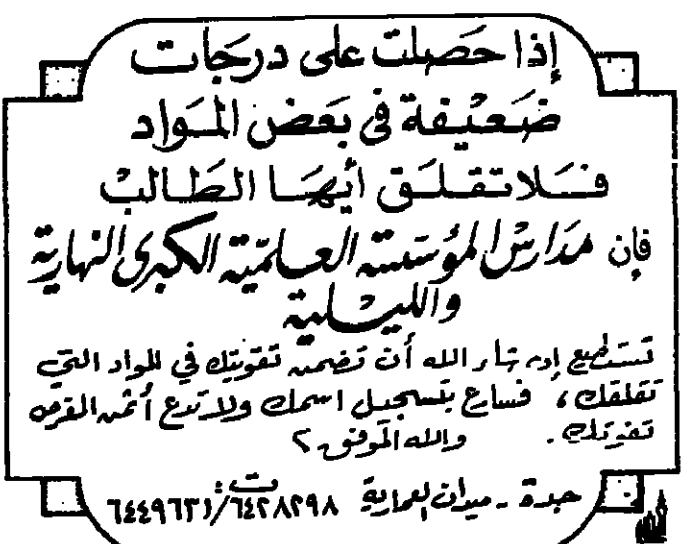 إذا حصلت على درجات
ضعيفة في بعض المواد
فلا تقلق أيها الطالب
فإن مدارس المؤسسة العلمية الكبرى النهارية
والليلية
تستطيع إن شاء الله أن تضمن تقويتك في المواد التي
تقلقك، فسارع بتسجيل اسمك ولا تدع أثمن الفرص
تفوتك. والله الموفق؟
جدة - ميدان العمارية ت: ٦٤٢٨٢٩٨/٦٤٤٩٦٣١